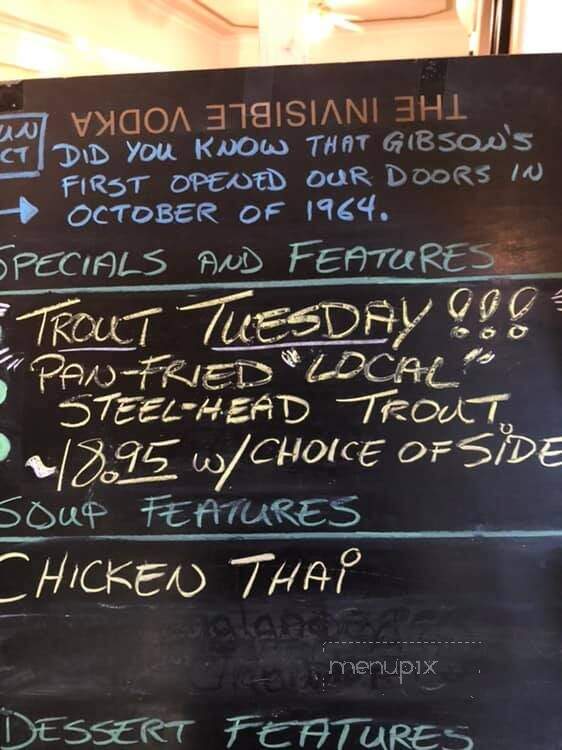 THE INVISIBLE VODKA
UN
CT
DID YOU KNOW THAT GIBSON'S
FIRST OPENED OUR DOORS IN
→ OCTOBER OF 1964.
SPECIALS AND FEATURES
TROUT TUESDAY!!!
PAN-FRIED "LOCAL"
STEEL-HEAD TROUT.
~18.95 w/ CHOICE OF SIDE
SOUP FEATURES
CHICKEN THAI
menupix
DESSERT FEATURES